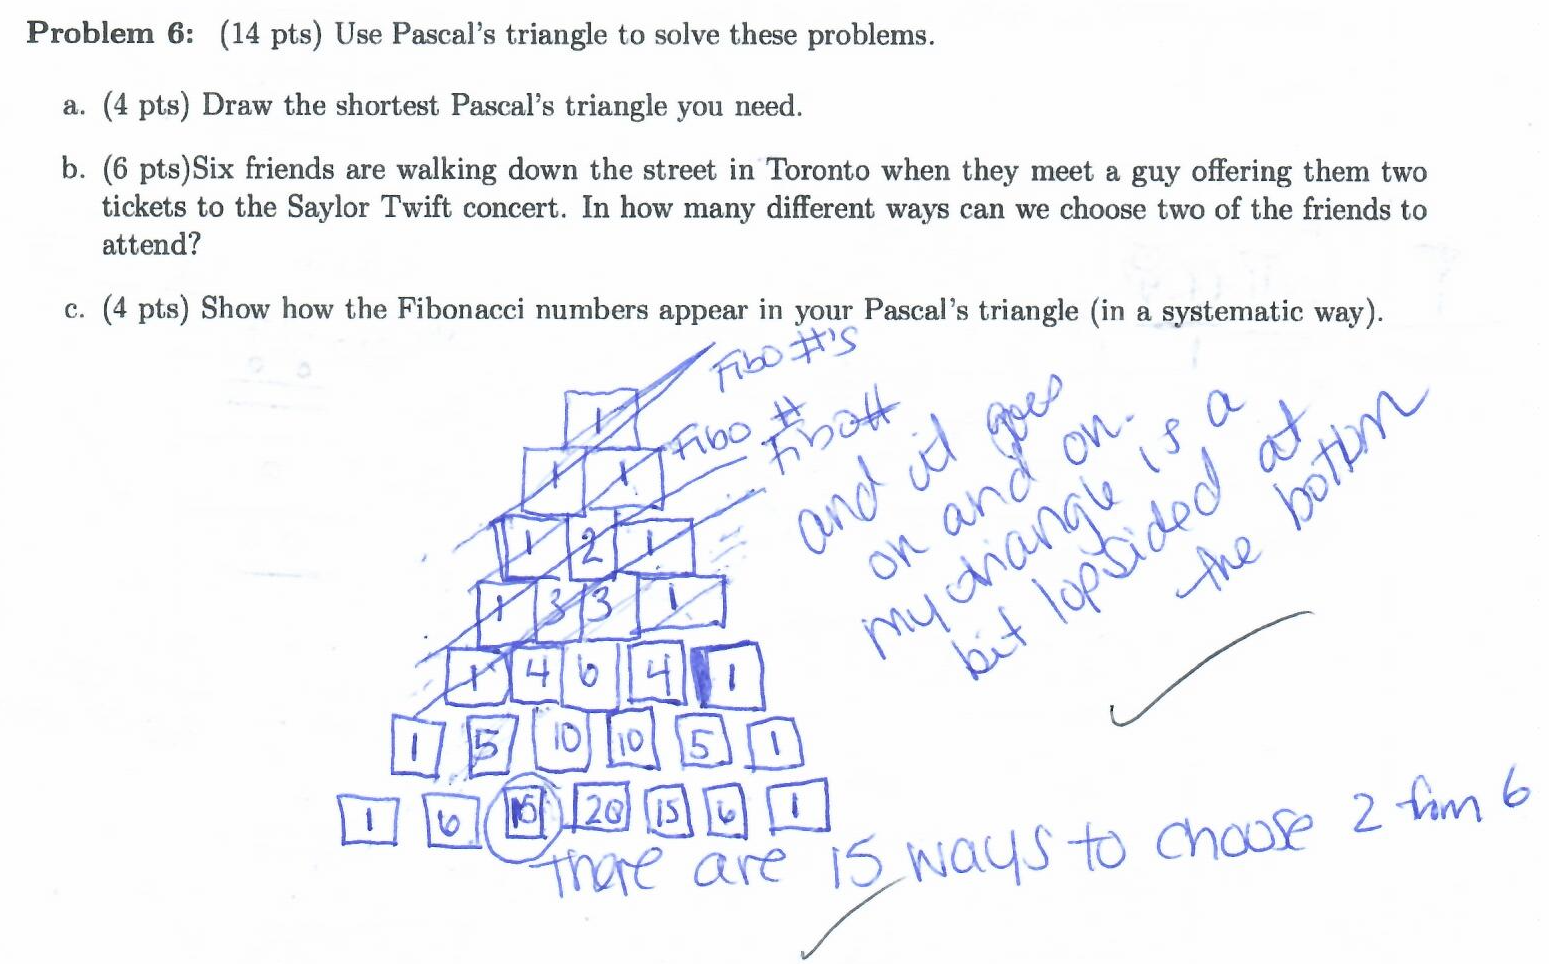 Problem 6: (14 pts) Use Pascal's triangle to solve these problems.
a. (4 pts) Draw the shortest Pascal's triangle you need.
b. (6 pts)Six friends are walking down the street in Toronto when they meet a guy offering them two
tickets to the Saylor Twift concert. In how many different ways can we choose two of the friends to
attend?
c. (4 pts) Show how the Fibonacci numbers appear in your Pascal's triangle (in a systematic way).
Fibo #'s
Fibo #
Fibo#
and it goes
on and on.
my triangle is a
bit lopsided at
the bottom
1
1 1
1 2 1
1 3 3 1
1 4 6 4 1
1 5 10 10 5 1
1 6 15 20 15 6 1
There are 15 ways to choose 2 from 6